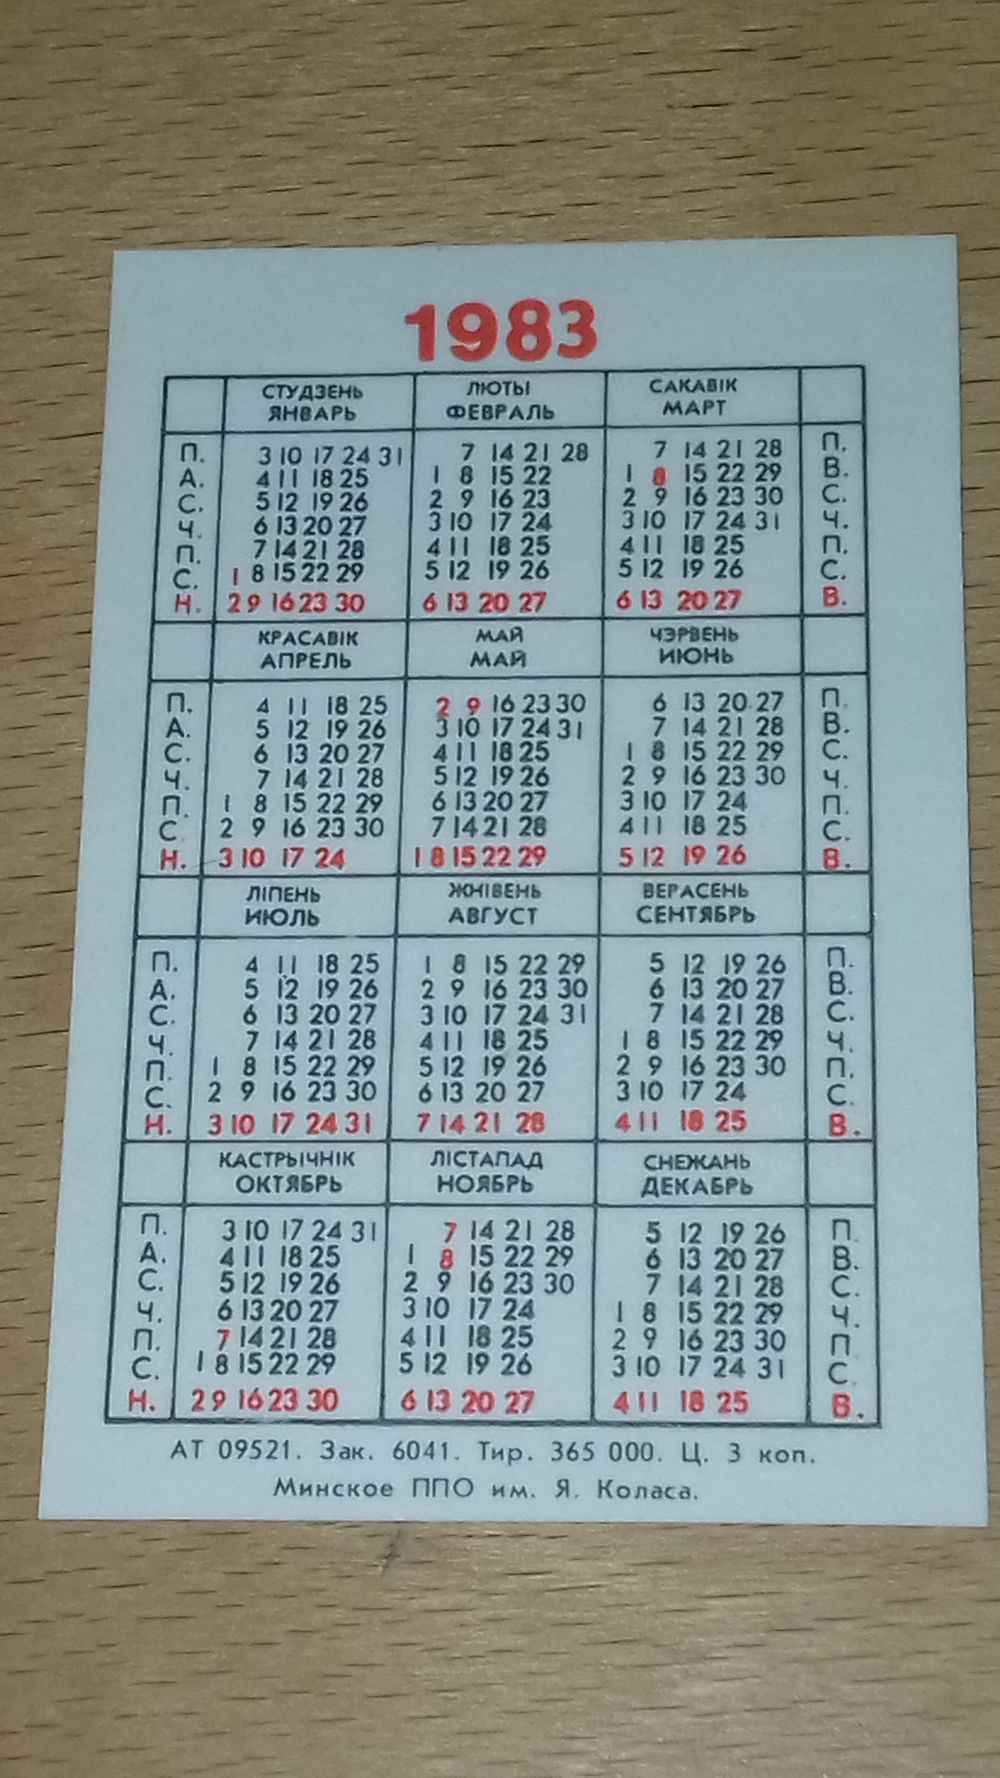 1983
СТУДЗЕНЬ ЛЮТЫ САКАВІК
ЯНВАРЬ ФЕВРАЛЬ МАРТ
П. 3 10 17 24 31 7 14 21 28 7 14 21 28 П.
А. 4 11 18 25 1 8 15 22 1 8 15 22 29 В.
С. 5 12 19 26 2 9 16 23 2 9 16 23 30 С.
Ч. 6 13 20 27 3 10 17 24 3 10 17 24 31 Ч.
П. 7 14 21 28 4 11 18 25 4 11 18 25 П.
С. 1 8 15 22 29 5 12 19 26 5 12 19 26 С.
Н. 2 9 16 23 30 6 13 20 27 6 13 20 27 В.
КРАСАВІК МАЙ ЧЭРВЕНЬ
АПРЕЛЬ МАЙ ИЮНЬ
П. 4 11 18 25 2 9 16 23 30 6 13 20 27 П.
А. 5 12 19 26 3 10 17 24 31 7 14 21 28 В.
С. 6 13 20 27 4 11 18 25 1 8 15 22 29 С.
Ч. 7 14 21 28 5 12 19 26 2 9 16 23 30 Ч.
П. 1 8 15 22 29 6 13 20 27 3 10 17 24 П.
С. 2 9 16 23 30 7 14 21 28 4 11 18 25 С.
Н. 3 10 17 24 1 8 15 22 29 5 12 19 26 В.
ЛІПЕНЬ ЖНІВЕНЬ ВЕРАСЕНЬ
ИЮЛЬ АВГУСТ СЕНТЯБРЬ
П. 4 11 18 25 1 8 15 22 29 5 12 19 26 П.
А. 5 12 19 26 2 9 16 23 30 6 13 20 27 В.
С. 6 13 20 27 3 10 17 24 31 7 14 21 28 С.
Ч. 7 14 21 28 4 11 18 25 1 8 15 22 29 Ч.
П. 1 8 15 22 29 5 12 19 26 2 9 16 23 30 П.
С. 2 9 16 23 30 6 13 20 27 3 10 17 24 С.
Н. 3 10 17 24 31 7 14 21 28 4 11 18 25 В.
КАСТРЫЧНІК ЛІСТАПАД СНЕЖАНЬ
ОКТЯБРЬ НОЯБРЬ ДЕКАБРЬ
П. 3 10 17 24 31 7 14 21 28 5 12 19 26 П.
А. 4 11 18 25 1 8 15 22 29 6 13 20 27 В.
С. 5 12 19 26 2 9 16 23 30 7 14 21 28 С.
Ч. 6 13 20 27 3 10 17 24 1 8 15 22 29 Ч.
П. 7 14 21 28 4 11 18 25 2 9 16 23 30 П
С. 1 8 15 22 29 5 12 19 26 3 10 17 24 31 С.
Н. 2 9 16 23 30 6 13 20 27 4 11 18 25 В.
АТ 09521. Зак. 6041. Тир. 365 000. Ц. 3 коп.
Минское ППО им. Я. Коласа.